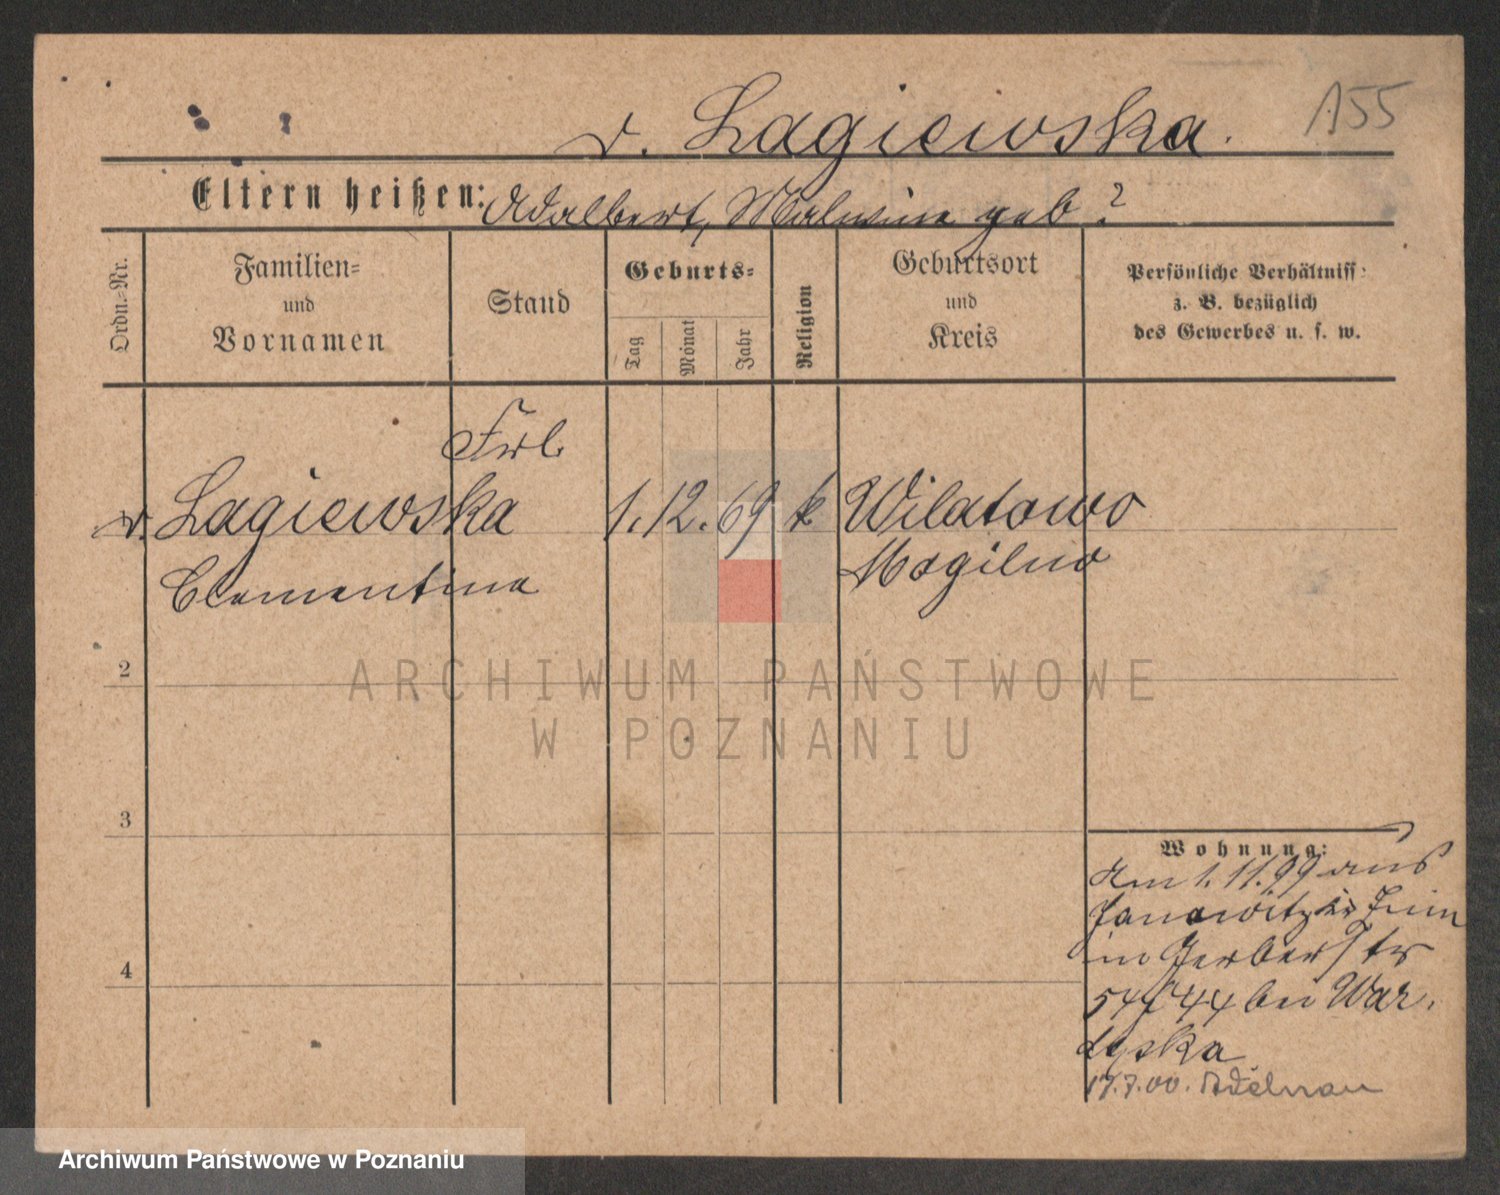 155
v. Lagiewska.
Eltern heißen: Adalbert, Malwine geb?
Ordn.=Nr.
Familien=
und
Vornamen
Stand
Geburts=
Tag
Monat
Jahr
Religion
Geburtsort
und
Kreis
Persönliche Verhältniss:
z. B. bezüglich
des Gewerbes u. s. w.
Frl.
v. Lagiewska 1. 12. 69 k Wilatowo
Clementine Mogilno
2
ARCHIWUM PAŃSTWOWE
W POZNANIU
3
Wohnung:
Am 1. 11. 99 aus
Janowitz Kr Znin
in Gerberstr
54 44 bei War.
17.7.00. Adelnau
4
Archiwum Państwowe w Poznaniu